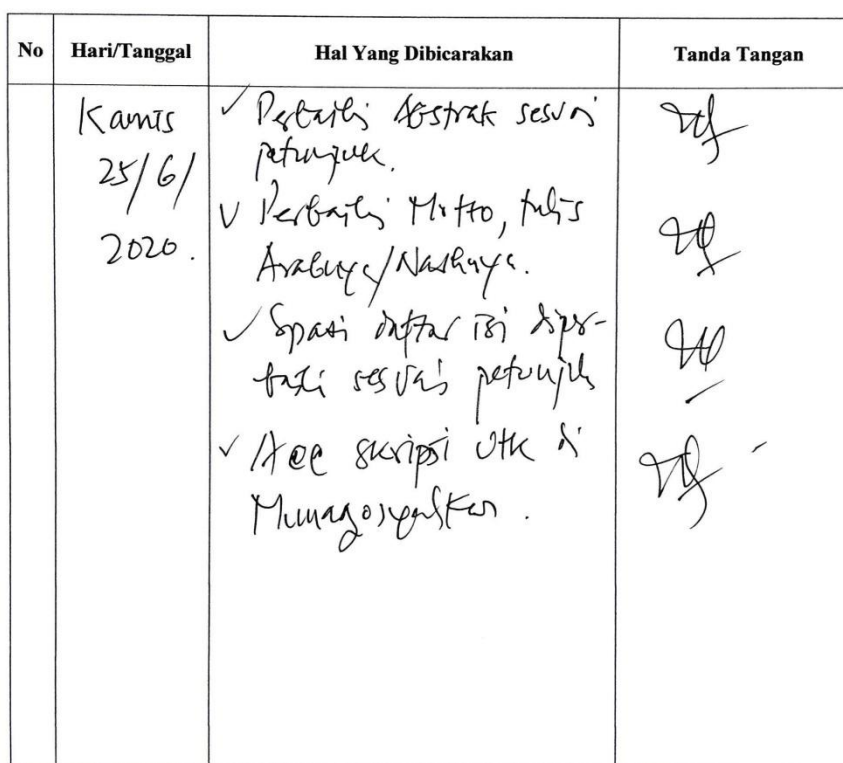 No Hari/Tanggal Hal Yang Dibicarakan Tanda Tangan
Kamis
25/6/
2020.
✓ Perbaiki Abstrak sesuai
petunjuk.
✓ Perbaiki Motto, tulis
Arabnya/Nashnya.
✓ Spasi daftar isi diper-
baiki sesuai petunjuk
✓ Acc skripsi Utk di
Munaqosyahkan.